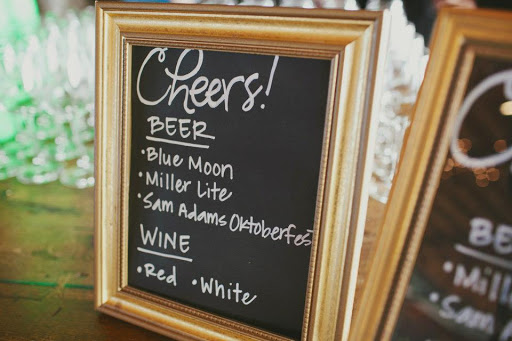 Cheers!
BEER
•Blue Moon
•Miller Lite
•Sam Adams Oktoberfest
WINE
•Red •White
C
BE
•Mill
•Sam A